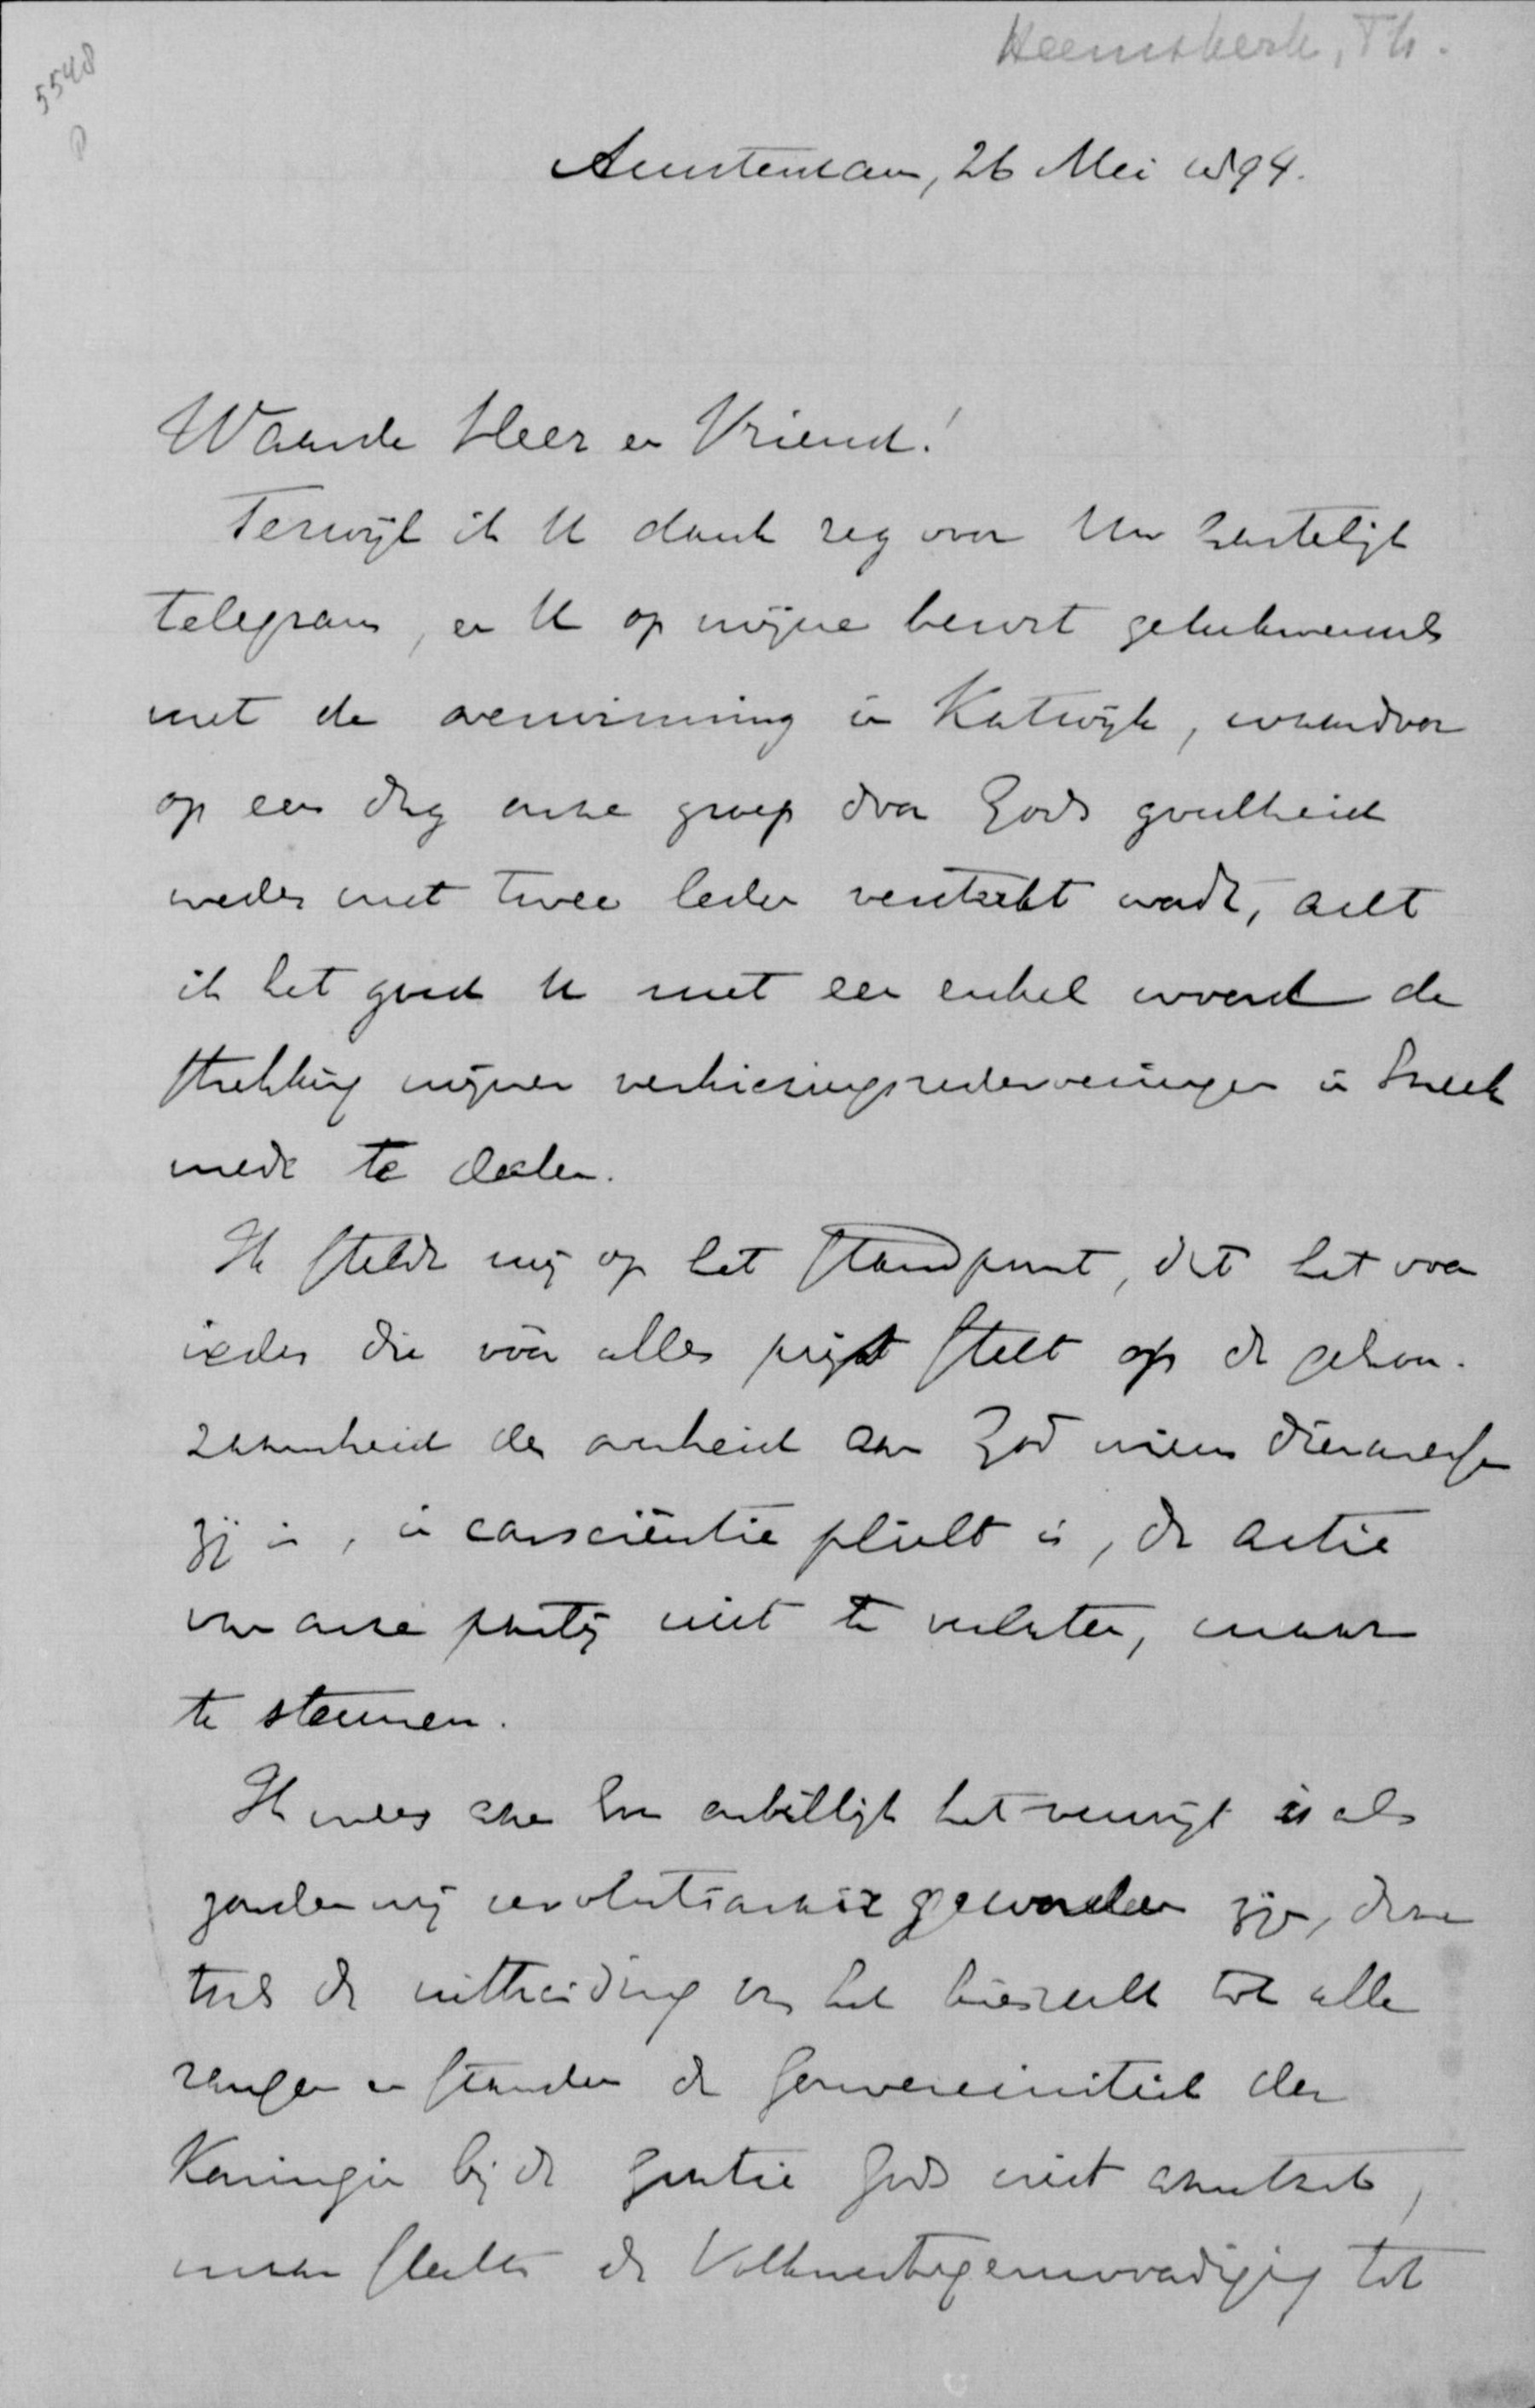 Heemskerk, Th.
5548
Amsterdam, 26 Mei 1894.
Waarde Heer en Vriend!
Terwijl ik U dank zeg voor Uw hartelijk
telegram, en U op mijne beurt gelukwensch
met de overwinning in Katwijk, waardoor
op een dag onze groep door Gods goedheid
weder met twee leden versterkt wordt, acht
ik het goed U met een enkel woord de
strekking mijner verkiezingsredevoeringen in Sneek
mede te deelen.
Ik stelde mij op het standpunt, dat het voor
ieder die vóór alles prijst stelt op de gehoor-
zaamheid der overheid aan God wiens dienaresse
zij is, in consciëntie plicht is, de actie
van onze partij niet te verlaten, maar
te steunen.
Ik wees aan hoe onbillijk het verwijt is als
zouden wij revolutionair geworden zijn, daar
toch de uitbreiding van het kiesrecht tot alle
rangen en standen de souvereiniteit der
Koningin bij de gratie Gods niet aantast,
maar slechts de Volksvertegenwoordiging tot